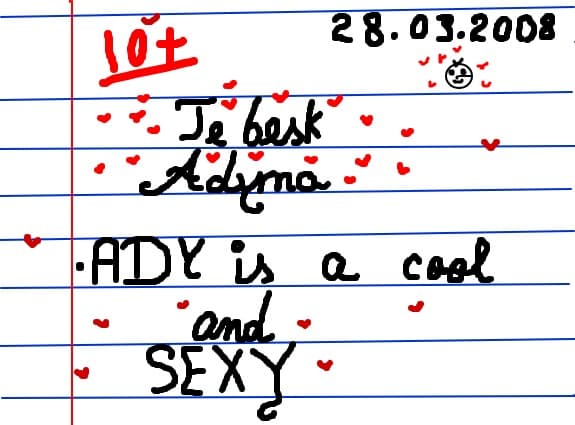 10+
28.03.2008
Te besk
Adyma
.ADY is a cool
and
SEXY